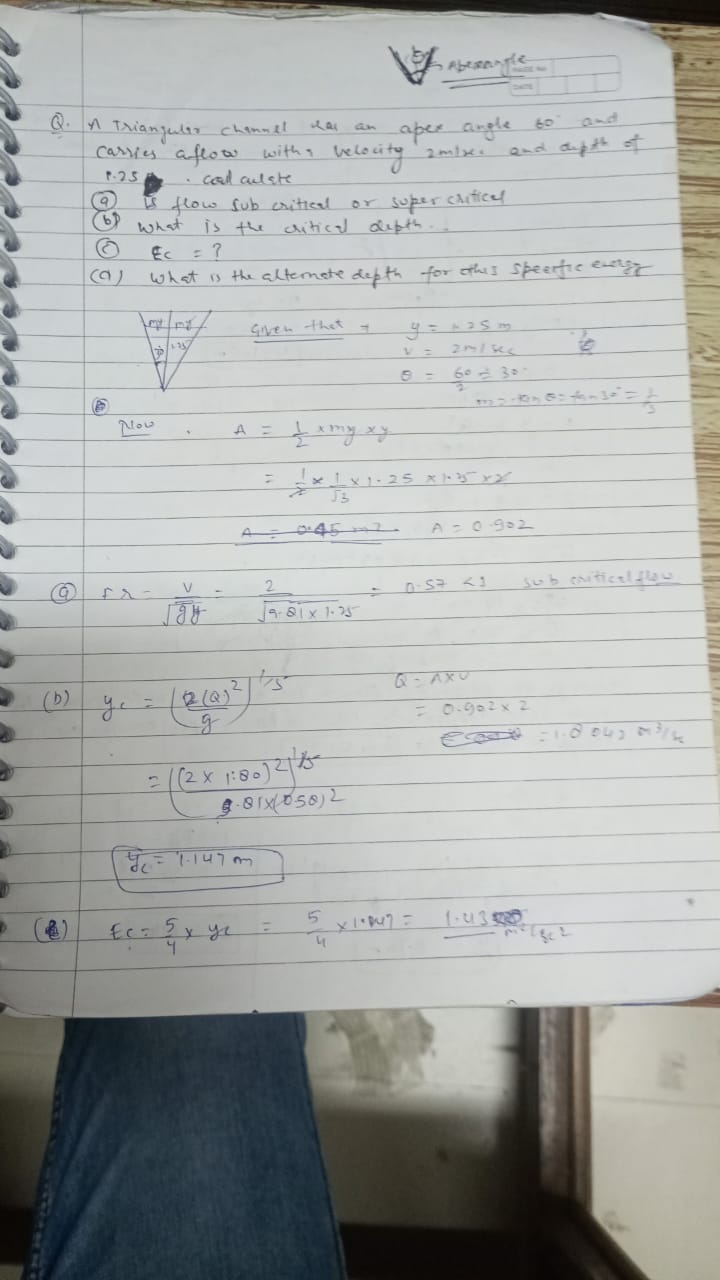 Apex angle
PAGE NO
DATE
Q. A Triangular channel has an apex angle 60° and
carries a flow with a velocity 2m/sec and depth of
1.25 . calculate
(a) is flow sub critical or super critical
(b) what is the critical depth..
(c) Ec = ?
(d) what is the alternate depth for this specific energy
my my
1.25
Given that → y = 1.25 m
v = 2m/sec
θ = 60/2 = 30°
m = tan θ = tan 30° = 1/√3
Now . A = 1/2 × my × y
= 1/2 × 1/√3 × 1.25 × 1.25 × 2
A = 0.45 m2 A = 0.902
(a) Fr = V/√gy = 2/√9.81×1.25 = 0.57 <1 sub critical flow
(b) yc = (2(Q)2/g)1/5 Q = A×V
= 0.902 × 2
= 1.8042 m3/s
= ((2 × 1.80)2/9.81×(0.58)2)1/5
yc = 1.147 m
Ec = 5/4 × yc = 5/4 × 1.147 = 1.43